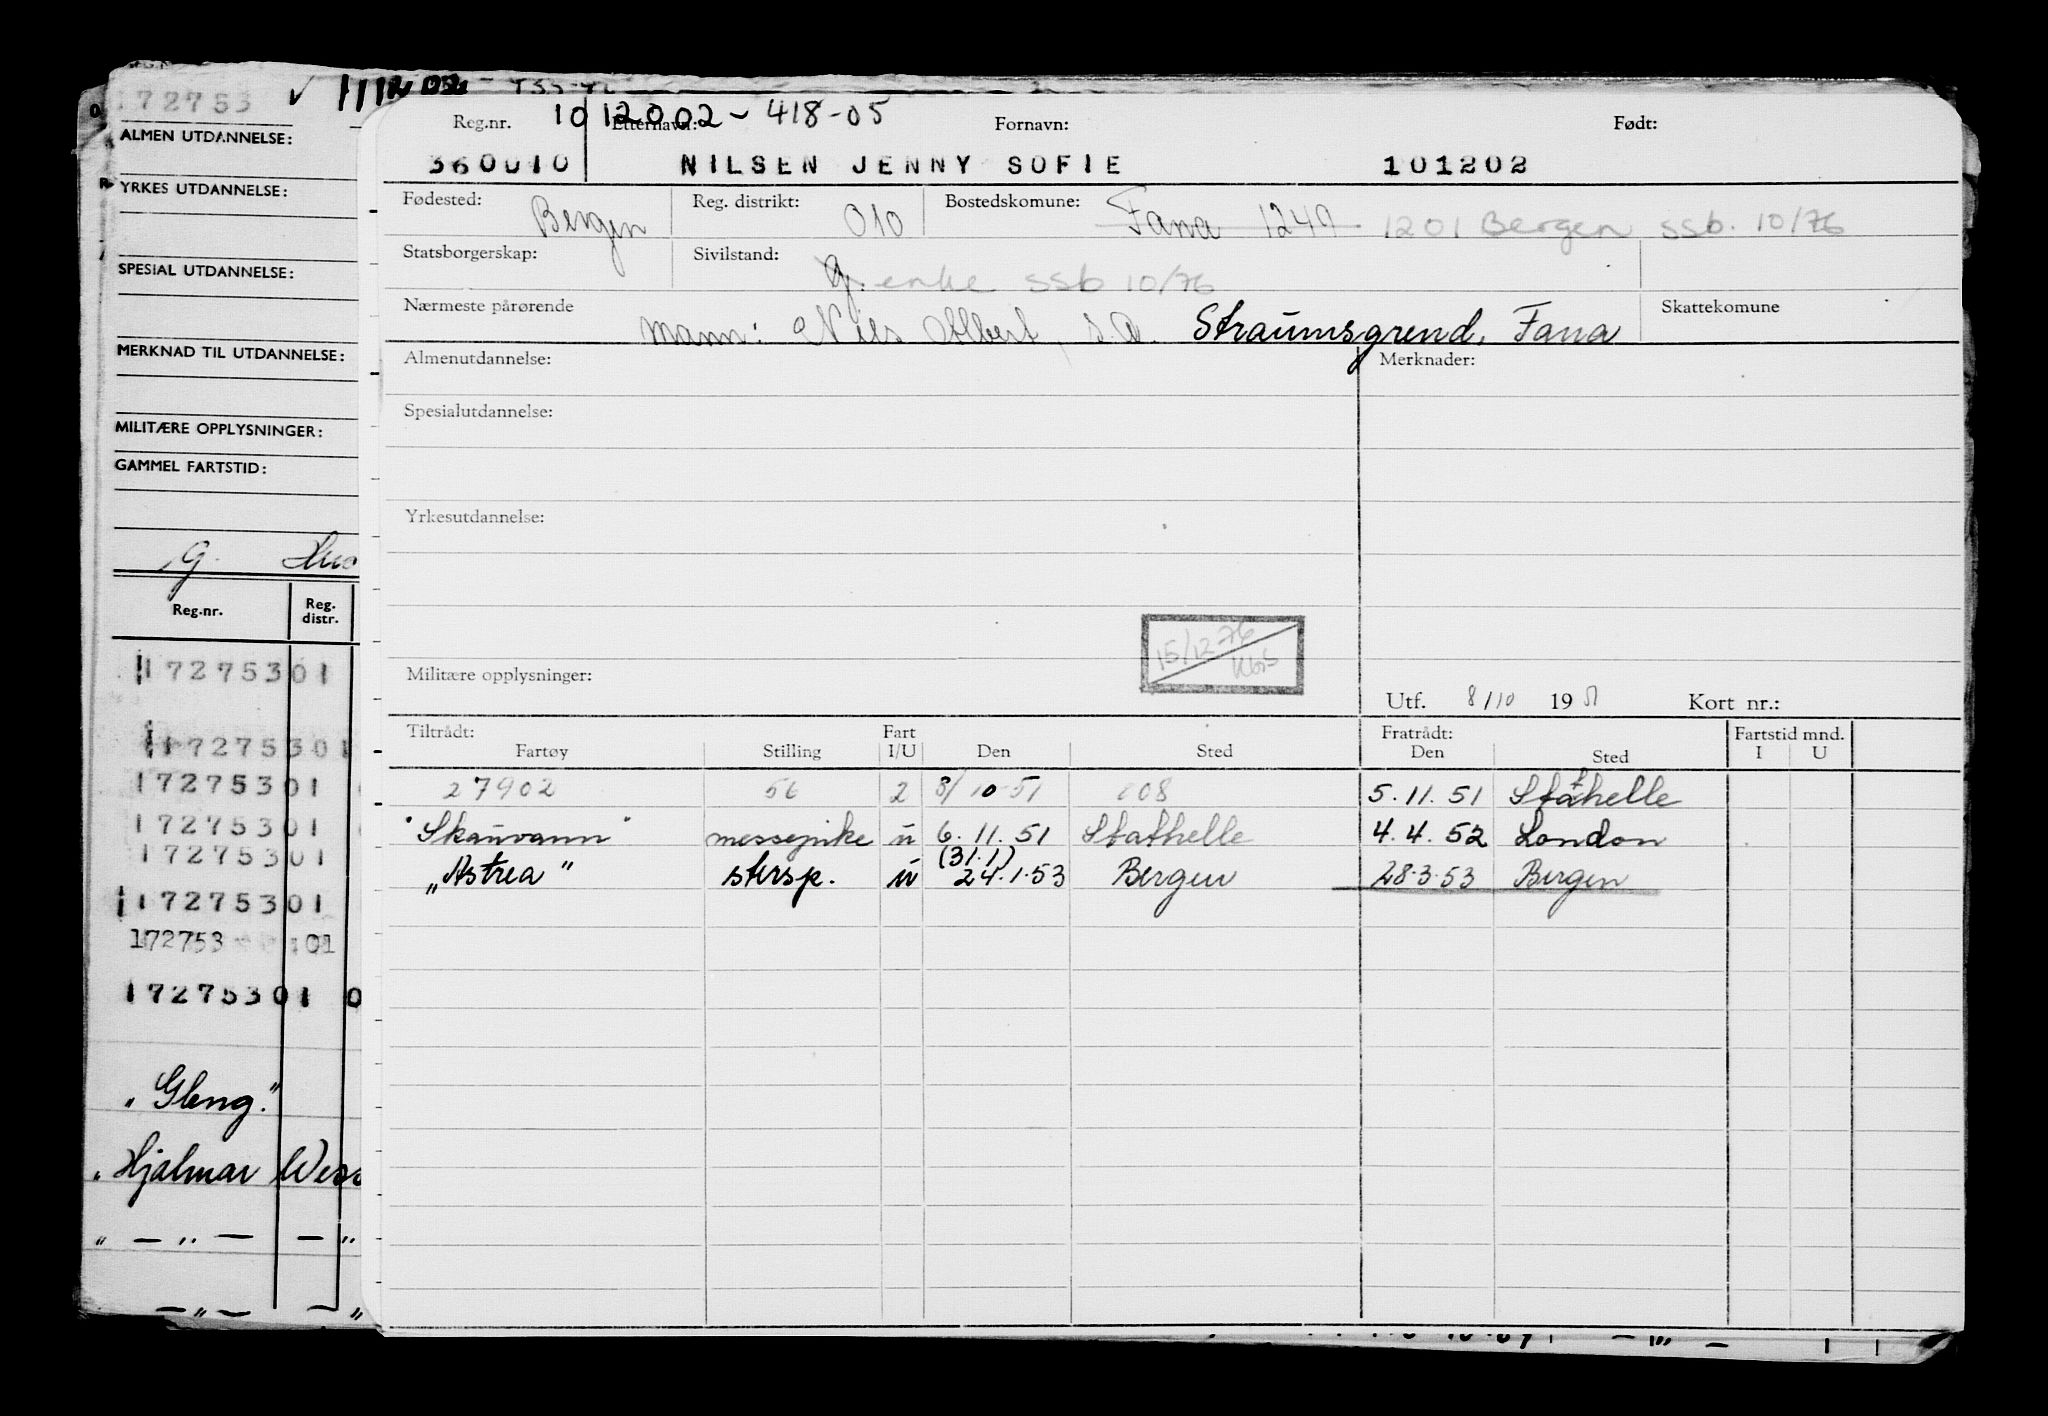 172753 ✓ 111202
ALMEN UTDANNELSE:
YRKES UTDANNELSE:
SPESIAL UTDANNELSE:
MERKNAD TIL UTDANNELSE:
MILITÆRE OPPLYSNINGER:
GAMMEL FARTSTID:
G.
Reg.nr. Reg. distr.
17275301
17275301
17275301
17275301
17275301
17275301
172753 01
17275301 0
"Gleng."
"Hjalmar Wess
" — " — — "
— " — — "
101202 - 418-05
Reg.nr. Etternavn: Fornavn: Født:
360010 NILSEN JENNY SOFIE 101202
Fødested: Bergen Reg. distrikt: 010 Bostedskomune: Fana 1249 1201 Bergen ssb. 10/76
Statsborgerskap: Sivilstand: g. enke ssb 10/76
Nærmeste pårørende Mann: Nils Albert, s.a. Straumsgrend, Fana Skattekomune
Almenutdannelse: Merknader:
Spesialutdannelse:
Yrkesutdannelse:
15/12-76
Militære opplysninger:
Utf. 8/10 1951 Kort nr.:
Tiltrådt: Fart Fratrådt: Fartstid mnd.
Fartøy Stilling I/U Den Sted Den Sted I U
27902 56 2 8/10-51 808 5.11.51 Stathelle
"Skauvann" messepike u 6.11.51 Stathelle 4.4.52 London
(31.1)
"Astrea" stersp. u 24.1.53 Bergen 28.3.53 Bergen